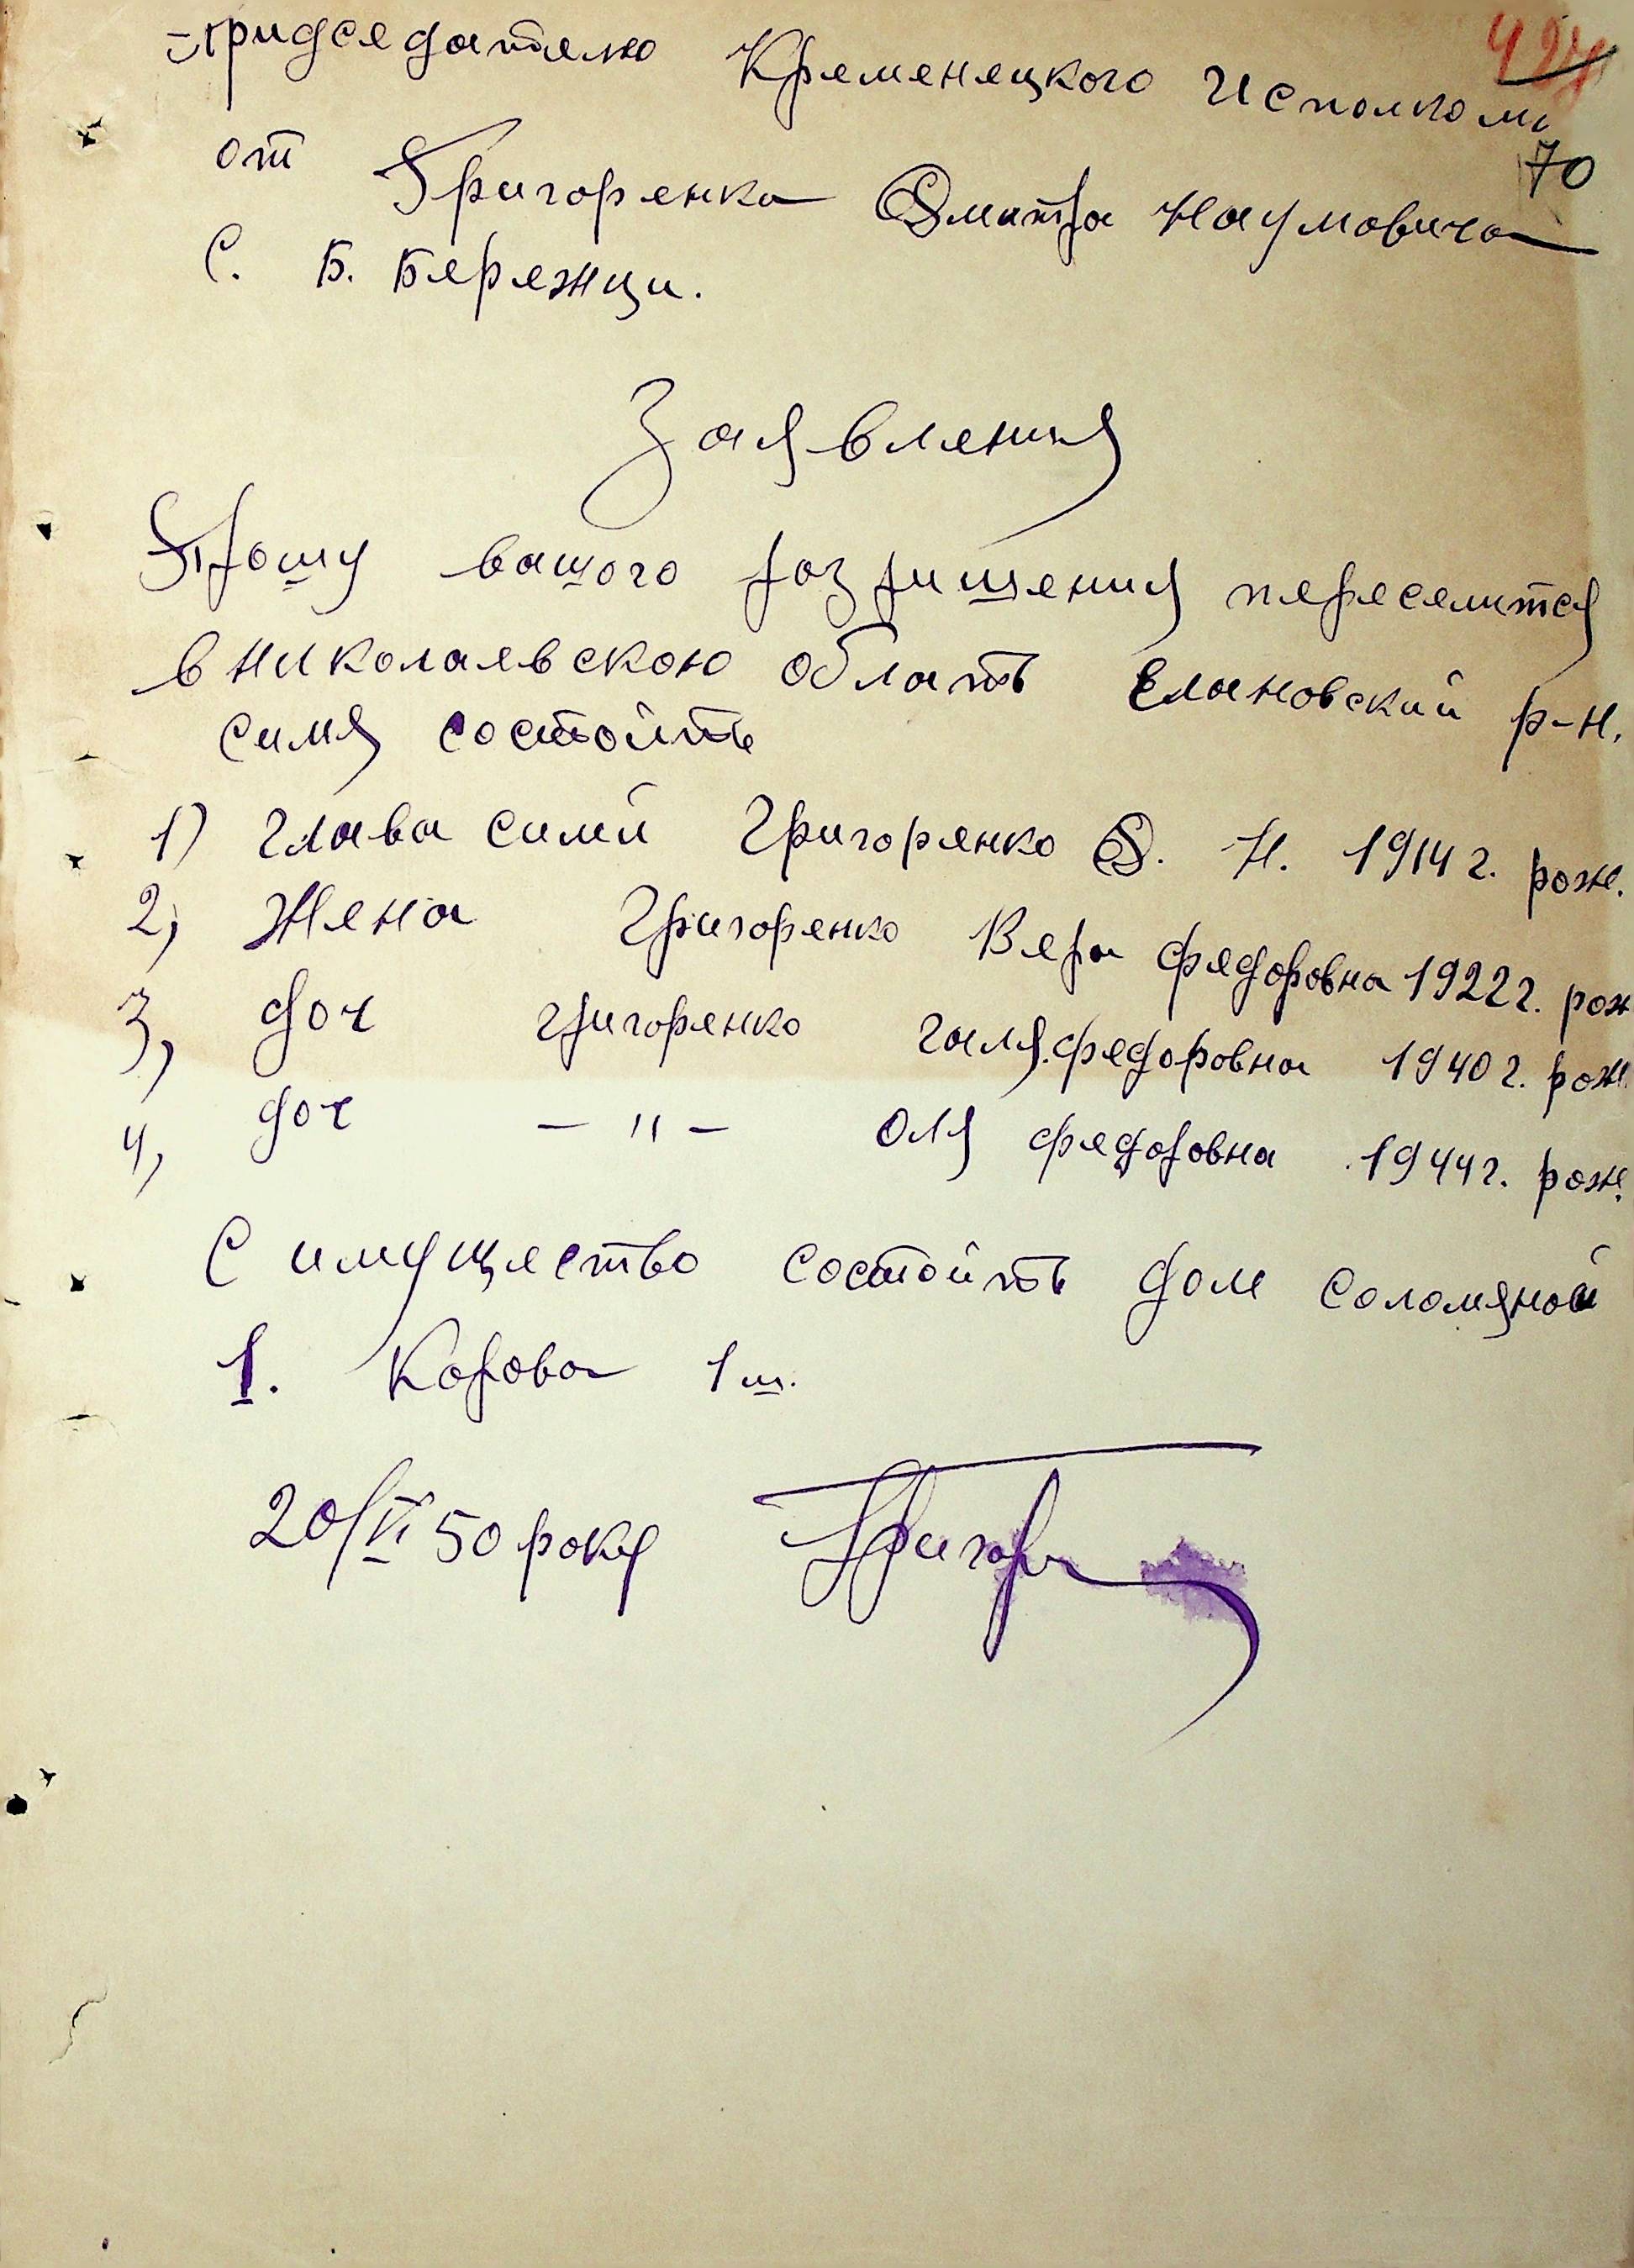 427
Придседателю Кременецкого Исполкома
70
от Григоренка Дмитра Наумовича
С. Б. Бережци.
Заявления
Прошу вашого розришения переселится
в Николаевскою область Елановский р-н.
симя состоїть
1) глава сими Григоренко Д. Н. 1914 г. рож.
2, Жена Григоренко Вера Федоровна 1922 г. рож
3, доч Григоренко Галя Федоровна 1940 г. рож.
4, доч -"- Оля Федоровна 1944 г. рож.
С имущество состоїть дом соломяной
1. Корова 1 ш.
20/VI 50 року Григор